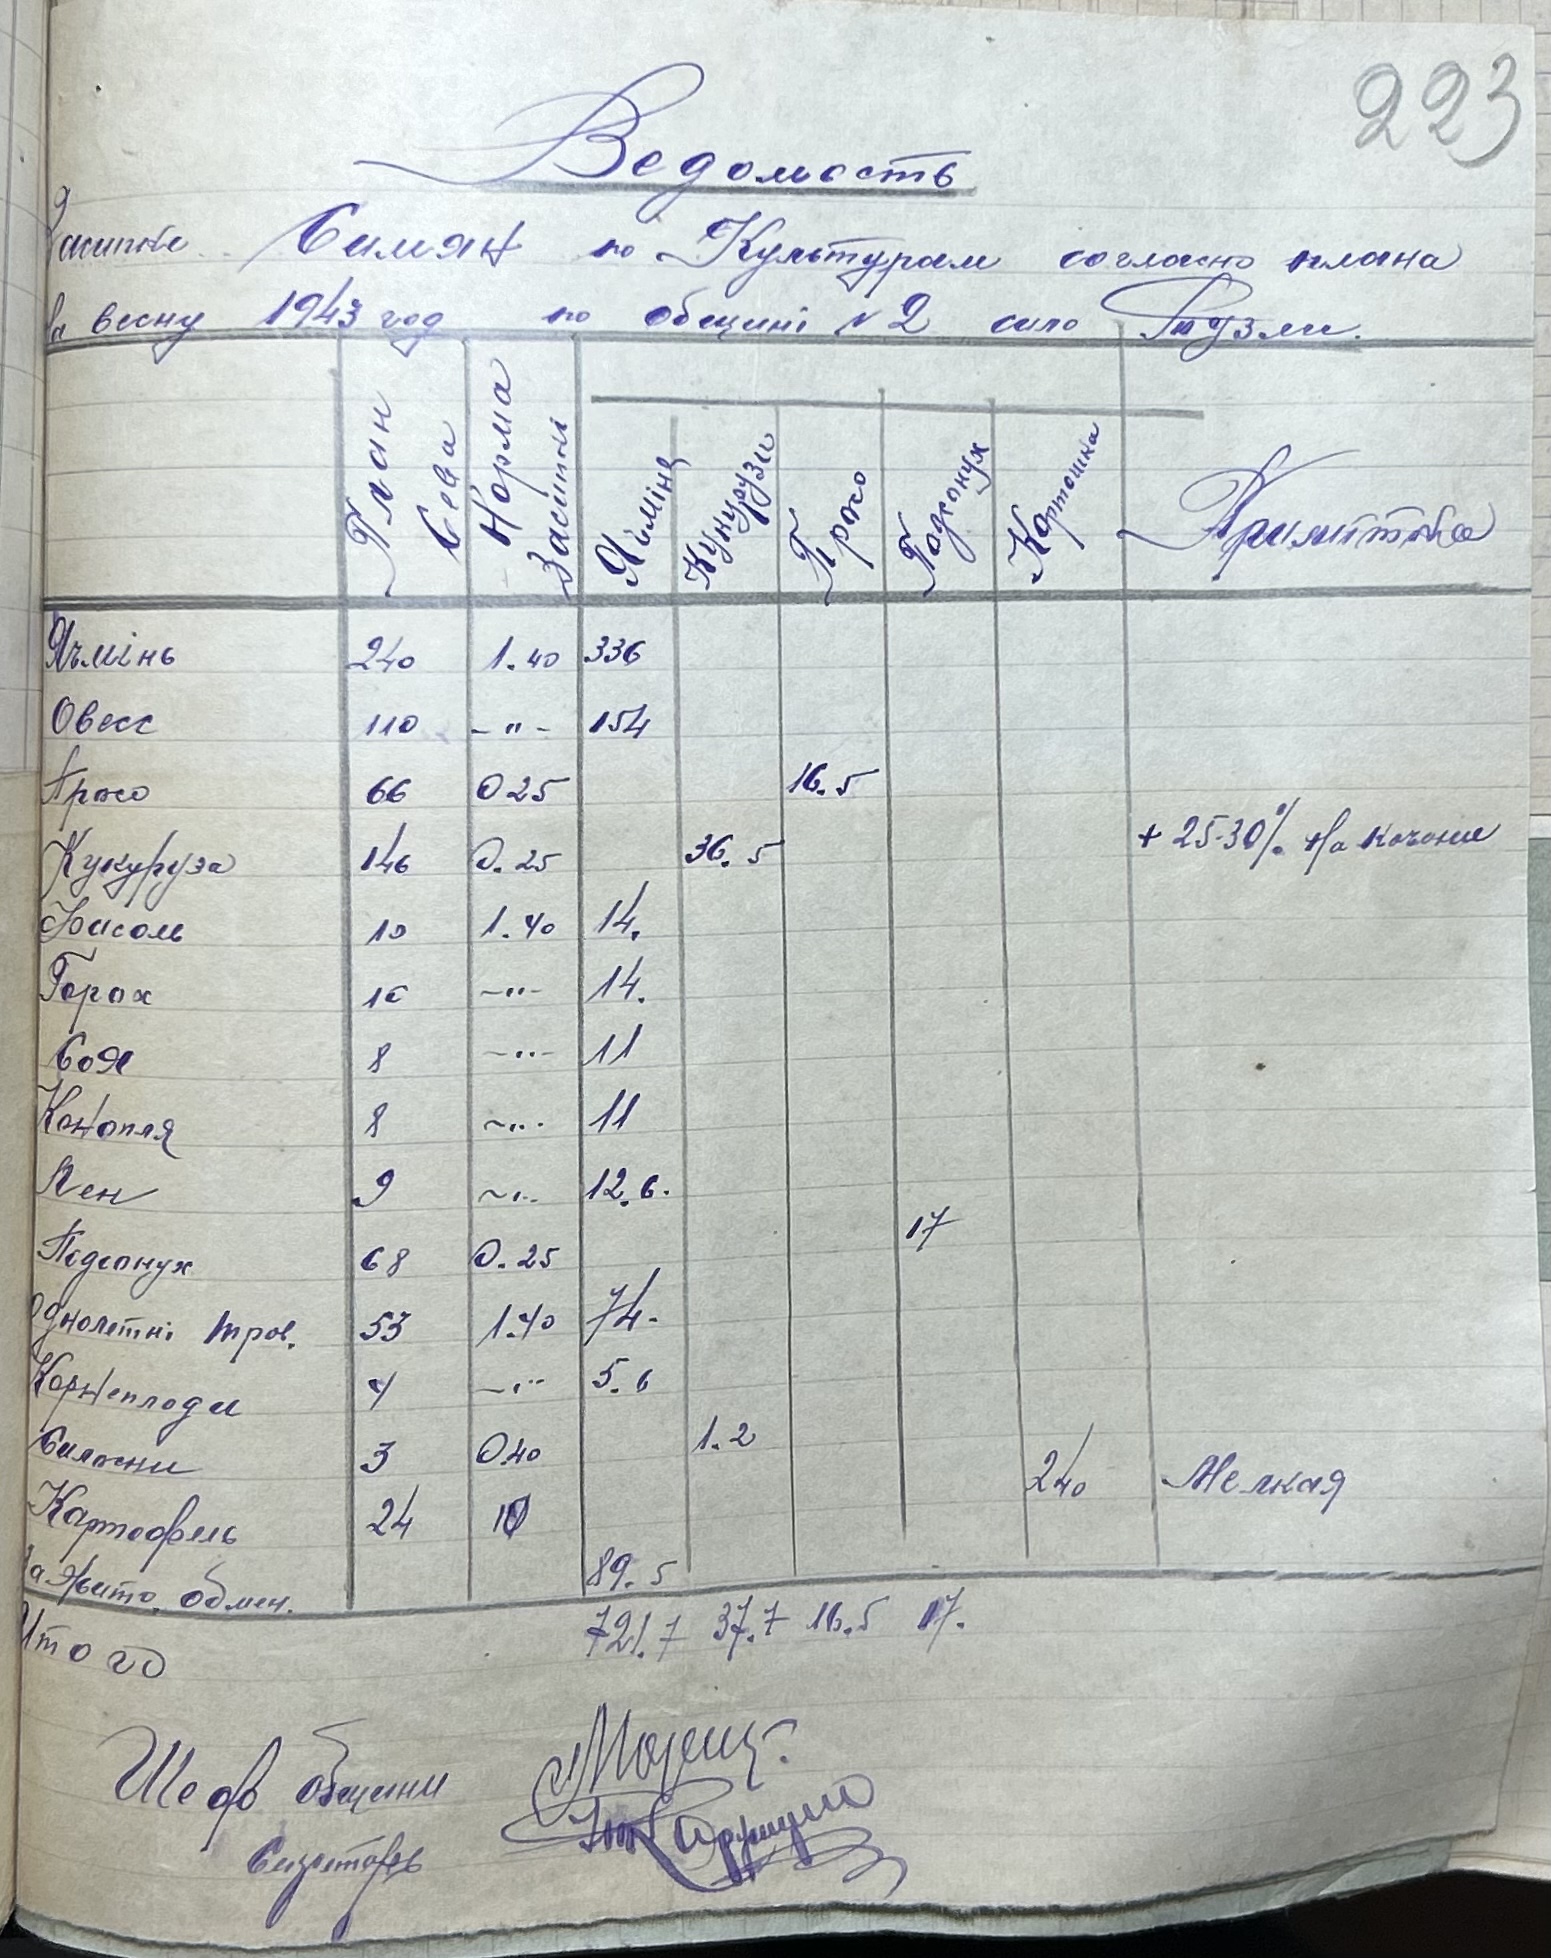 223
Ведомость
Засипке Симян по Культурам согласно плана
на весну 1943 год по общині №2 село Тузли.
План Сева Норма Засипкі Ячмінь Кукурузи Просо Подсонух Картошка Примітка
Ячмінь 240 1.40 336
Овесс 110 -"- 154
Просо 66 0 25 16.5
Кукуруза 146 0.25 36.5 + 25-30% На качани
Фасоль 10 1.40 14.
Горох 10 -"- 14.
Соя 8 -"- 11
Конопля 8 -"- 11
Лен 9 -"- 12.6.
Подсонух 68 0.25 17
Однолетні трав. 53 1.40 74.
Корнеплоди 4 -"- 5.6
Силосни 3 0.40 1.2
Картофель 24 10 240 Мелкая
За жито. обмен. 89.5
Итого 721.7 37.7 16.5 17.
Шеф общини
Сикретарь